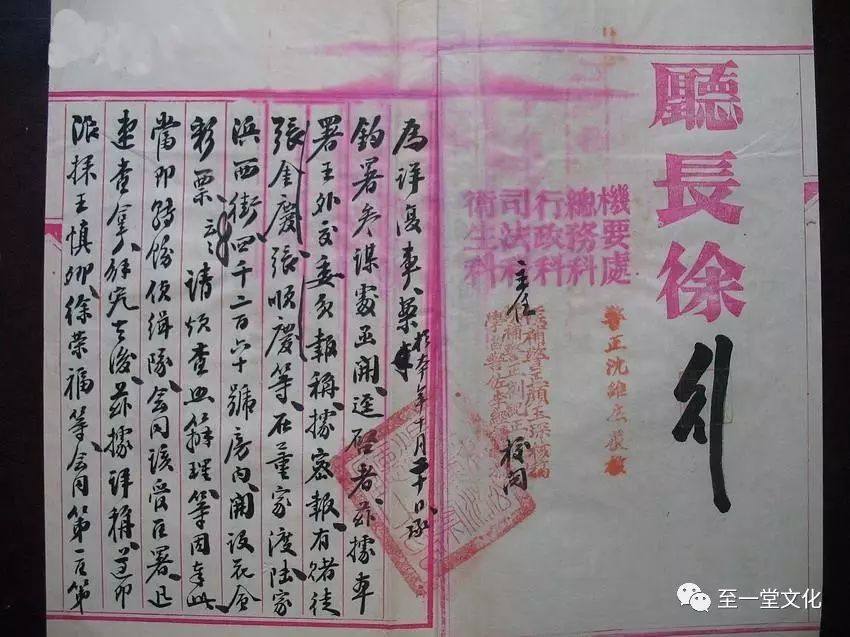 廳長徐
機要處
總務科
行政科
司法科
衛生科
警正沈維
主任
校閱
為詳復事、案於本年十月 日承
鈞署參謀處函開、逕啓者、茲據本
署王外交委員報稱、據密報、有賭徒
張金慶、張順慶等、在董家渡陸家
浜西街四千二百六十號房內、開設花會
彩票、 請煩查照辦理等因、奉此、
當即轉飭偵緝隊、會同該管區署、迅
速查拿解究去後、茲據詳稱、遵即
派探王慎卿、徐榮福等、會同第一區第
至一堂文化